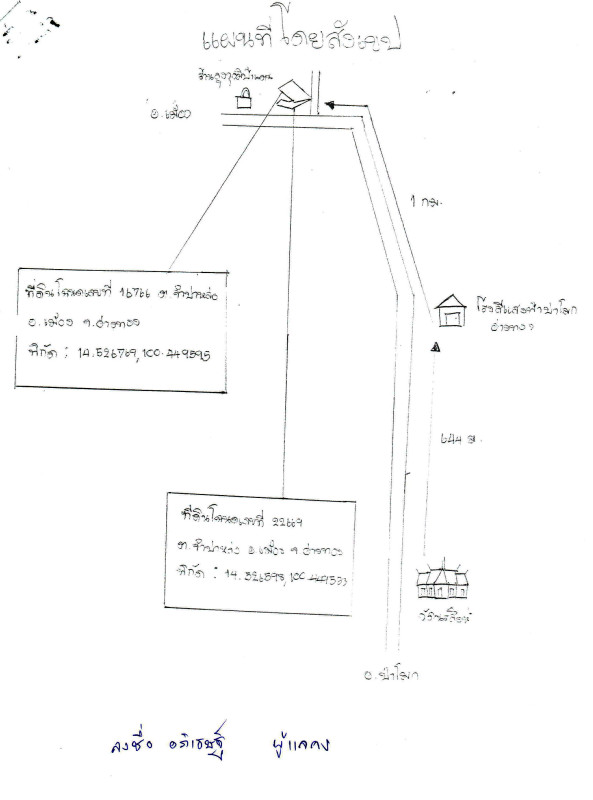 แผนที่โดยสังเขป
อ.เมือง
1 กม.
ที่ดินโฉนดเลขที่ 16766 ต.จำปาหล่อ
อ.เมือง จ.อ่างทอง
พิกัด : 14.526769,100.449595
โรงสีแสงฟ้าป่าโมก
อ่างทอง
644 ม.
ที่ดินโฉนดเลขที่ 22669
ต.จำปาหล่อ อ.เมือง จ.อ่างทอง
พิกัด : 14.526598,100.449533
อ.ป่าโมก
ลงชื่อ อภิเชษฐ์ ผู้แสดง